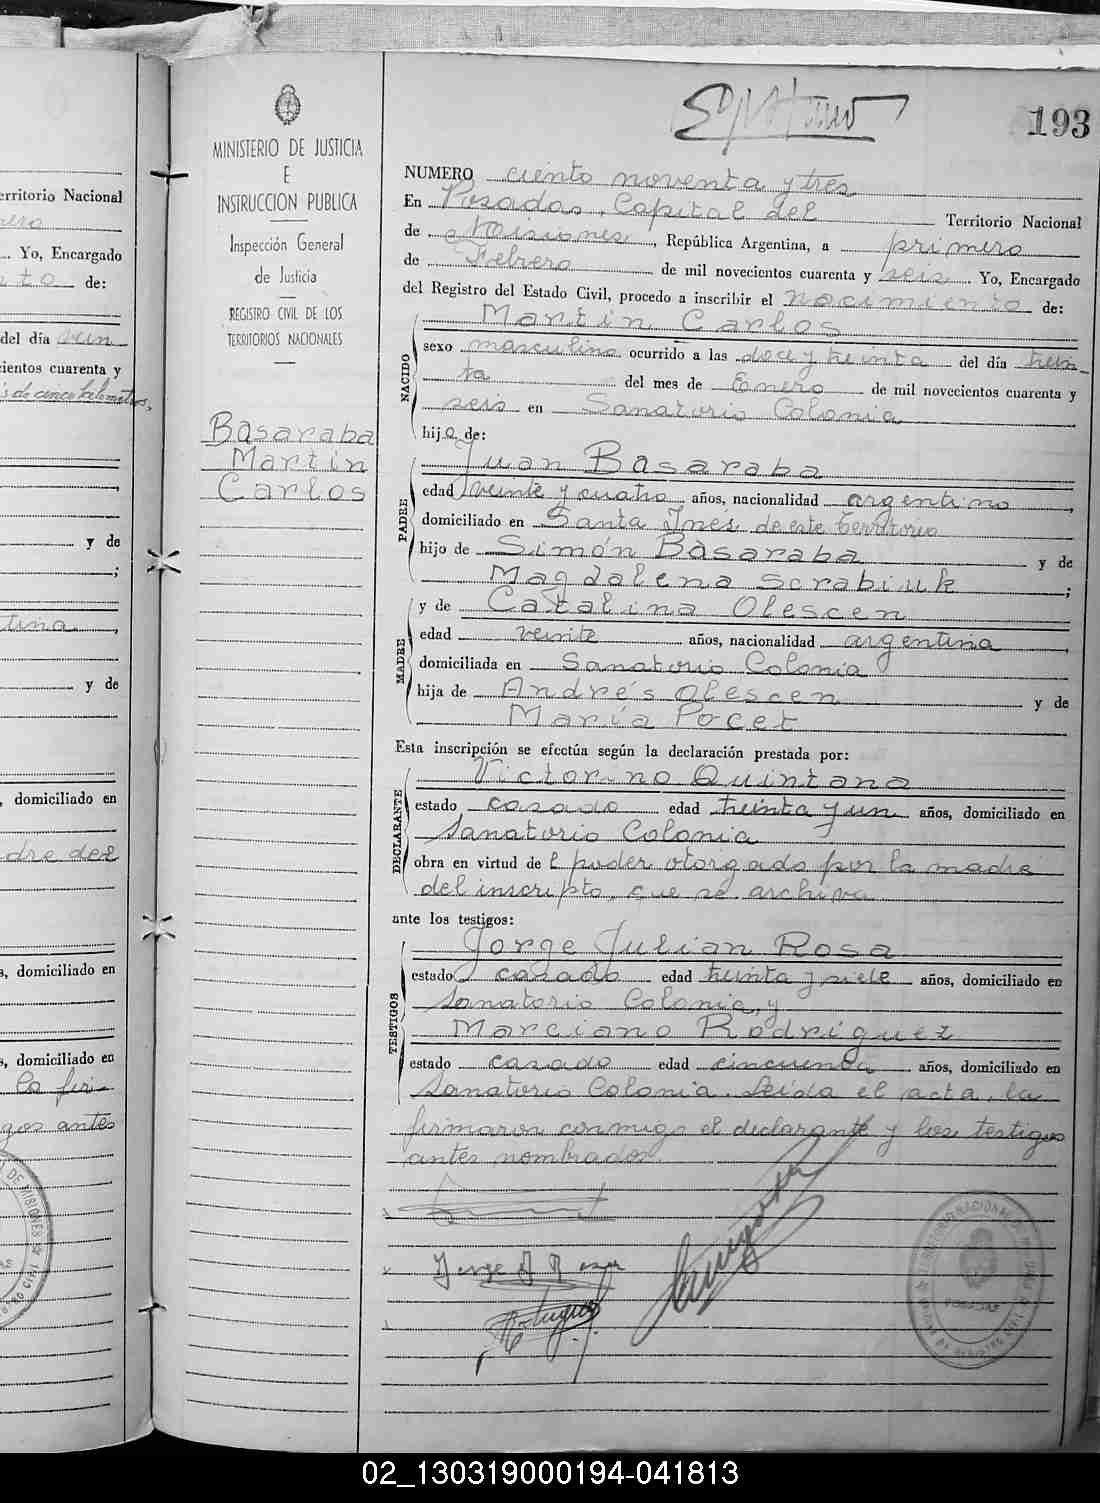 193
MINISTERIO DE JUSTICIA
E
INSTRUCCION PUBLICA
Inspección General
de Justicia
REGISTRO CIVIL DE LOS
TERRITORIOS NACIONALES
Basaraba
Martin
Carlos
NUMERO ciento noventa y tres
En Posadas, Capital del Territorio Nacional
de Misiones, República Argentina, a primero
de Febrero de mil novecientos cuarenta y seis Yo, Encargado
del Registro del Estado Civil, procedo a inscribir el nacimiento de:
Martin Carlos
NACIDO
sexo masculino ocurrido a las doce y treinta del día trein-
ta del mes de Enero de mil novecientos cuarenta y
seis en Sanatorio Colonia
hijo de:
Juan Basaraba
PADRE
edad veinte y cuatro años, nacionalidad argentino,
domiciliado en Santa Ines de este territorio
hijo de Simón Basaraba y de
Magdalena Scrabiuk;
y de Catalina Olescen
MADRE
edad veinte años, nacionalidad argentina,
domiciliada en Sanatorio Colonia
hija de Andrés Olescen y de
María Pocet
Esta inscripción se efectúa según la declaración prestada por:
Victorino Quintana
DECLARANTE
estado casado edad treinta y un años, domiciliado en
Sanatorio Colonia
obra en virtud de l poder otorgado por la madre
del inscripto, que se archiva
ante los testigos:
Jorge Julian Rosa
TESTIGOS
estado casado edad treinta y siete años, domiciliado en
Sanatorio Colonia, y
Marciano Rodriguez
estado casado edad cincuenta años, domiciliado en
Sanatorio Colonia. Leida el acta, la
firmaron conmigo el declarante y los testigos
antes nombrados.
Jorge J Rosa
erritorio Nacional
Yo, Encargado
de:
del día
cientos cuarenta y
s de cinco kilometros,
y de
;
tina,
y de
, domiciliado en
dre del
s, domiciliado en
s, domiciliado en
la fir-
gos antes
02_130319000194-041813